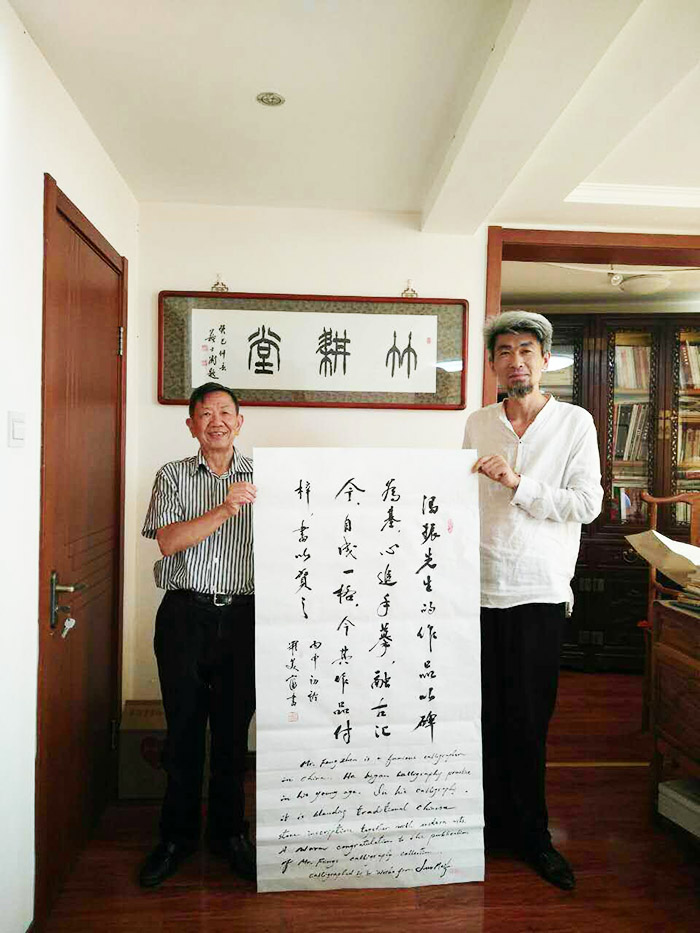 竹耕堂
癸巳仲夏
蘇士澍題
馮振先生的作品以碑
為基,心追手摹,融古汇
今,自成一格,今其作品付
梓,書以賀之
丙申初
書
Mr. Fengzhen is a famous calligrapher
in China. He began calligraphy practice
in his young age. In his calligraphy,
it is blending traditional Chinese
stone inscription together with modern arts.
A warm congratulation to the publication
of Mr. Feng's calligraphy collection.
calligraphed